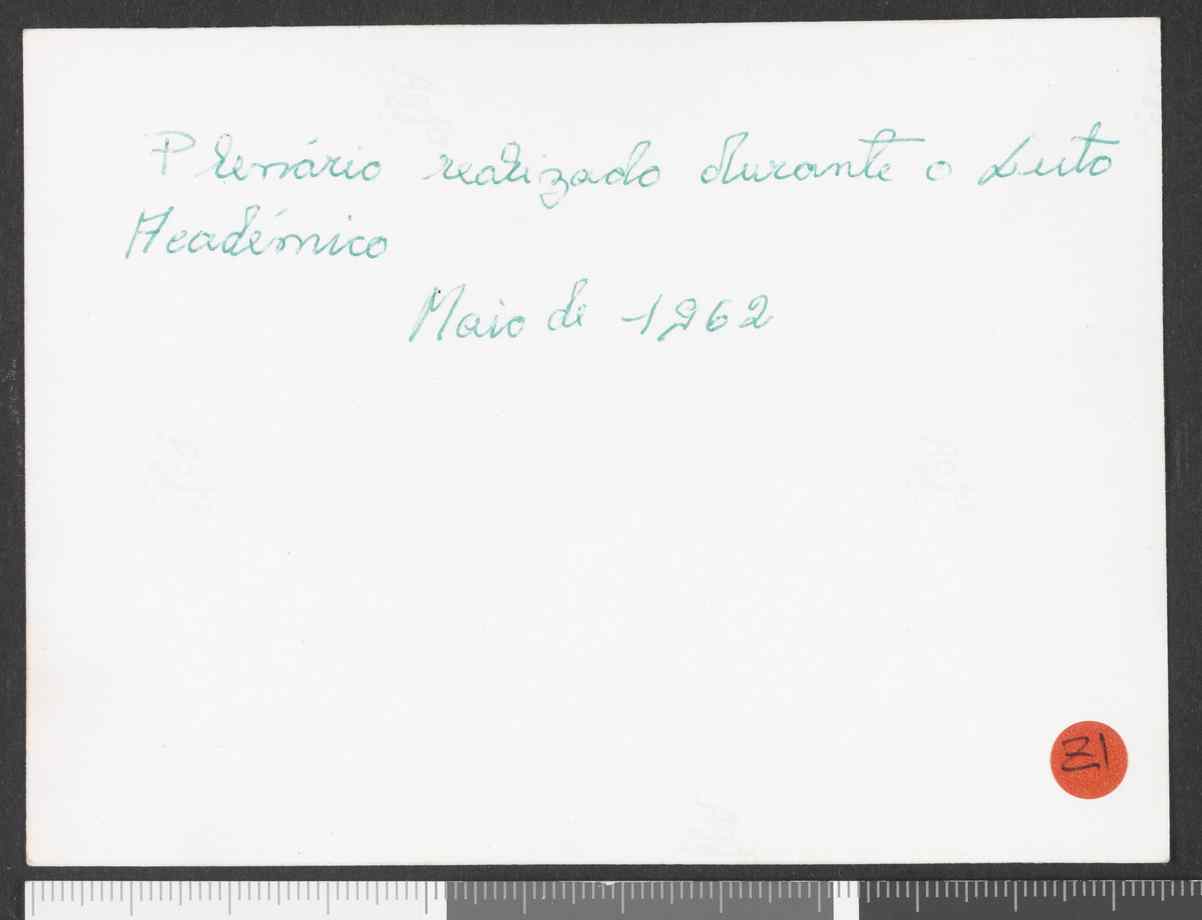 Plenário realizado durante o Luto
Académico
Maio de 1962
Z1